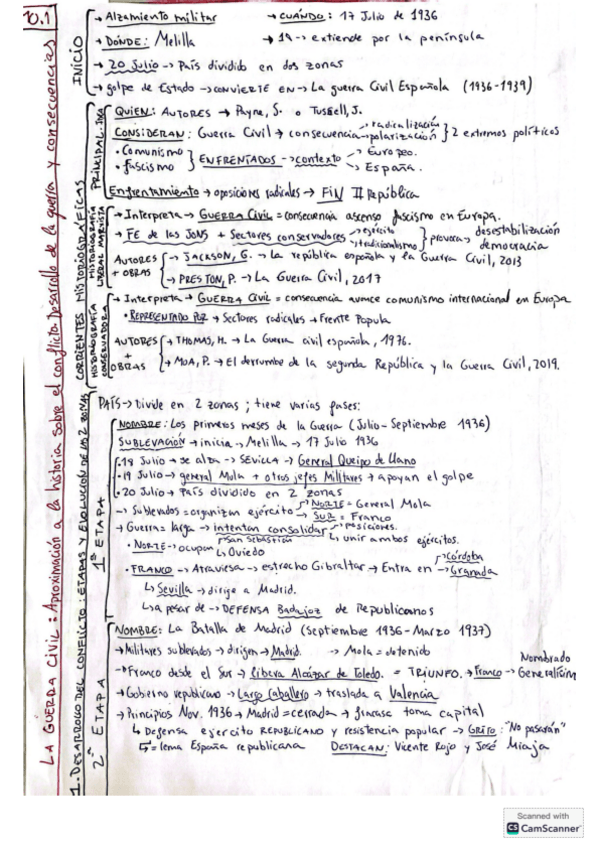 10.1
LA GUERRA CIVIL: Aproximación a la historia sobre el conflicto. Desarrollo de la guerra y consecuencias
INICIO
→ Alzamiento militar → CUÁNDO: 17 Julio de 1936
→ DÓNDE: Melilla → 19 -> extiende por la península
→ 20 Julio -> País dividido en dos zonas
→ golpe de Estado -> CONVIERTE EN -> La guerra Civil Española (1936-1939)
CORRIENTES HISTORIOGRÁFICAS
PRINCIPAL
QUIEN: AUTORES → Payne, S. o Tusell, J.
CONSIDERAN: Guerra Civil -> consecuencia -> radicalización -> polarización } 2 extremos políticos
• Comunismo
• fascismo } ENFRENTADOS -> contexto -> Europeo. -> España.
Enfrentamiento → oposiciones radicales → FIN II República
HISTORIOGRAFÍA LIBERAL MARXISTA
→ Interpreta → GUERRA CIVIL = consecuencia ascenso fascismo en Europa.
→ FE de las JONS + Sectores conservadores -> ejército -> tradicionalismo } provoca -> desestabilización democracia
AUTORES + OBRAS
→ JACKSON, G. -> La república española y la Guerra Civil, 2013
→ PRESTON, P. -> La Guerra Civil, 2017
HISTORIOGRAFÍA CONSERVADORA
→ Interpreta -> GUERRA CIVIL = consecuencia avance comunismo internacional en Europa
• REPRESENTADO POR -> Sectores radicales → Frente Popula
AUTORES + OBRAS
→ THOMAS, H. → La Guerra civil española, 1976.
→ MOA, P. → El derrumbe de la segunda República y la Guerra Civil, 2019.
1. DESARROLLO DEL CONFLICTO: ETAPAS Y EVOLUCIÓN DE LAS 2 ZONAS
PAÍS -> Divide en 2 zonas; tiene varias fases:
1ª ETAPA
NOMBRE: Los primeros meses de la Guerra (Julio - Septiembre 1936)
SUBLEVACIÓN → inicia -> Melilla -> 17 Julio 1936
• 18 Julio → se alza -> SEVILLA -> General Queipo de Llano
• 19 Julio → general Mola + otros jefes Militares → apoyan el golpe
• 20 Julio → País dividido en 2 zonas
-> Sublevados = organizan ejército -> NORTE = General Mola -> SUR = Franco
→ Guerra = larga -> intentan consolidar -> posiciones. ↳ unir ambos ejércitos.
• NORTE -> ocupan -> San Sebastián ↳ Oviedo
• FRANCO -> Atraviesa -> estrecho Gibraltar → Entra en -> Córdoba -> Granada
↳ Sevilla → dirige a Madrid.
↳ a pesar de -> DEFENSA Badajoz de Republicanos
2ª ETAPA
NOMBRE: La Batalla de Madrid (Septiembre 1936 - Marzo 1937)
→ Militares sublevados → dirigen → Madrid. -> Mola = detenido
→ Franco desde el Sur -> Libera Alcázar de Toledo. = TRIUNFO. → Franco -> Nombrado Generalísim
→ Gobierno republicano -> Largo Caballero → traslada a Valencia
→ Principios Nov. 1936 → Madrid = cercada → fracasa toma capital
↳ Defensa ejercito REPUBLICANO y resistencia popular -> GRITO: "No pasarán"
↳ = lema España republicana DESTACAN: Vicente Rojo y José Miaja
Scanned with
CS CamScanner